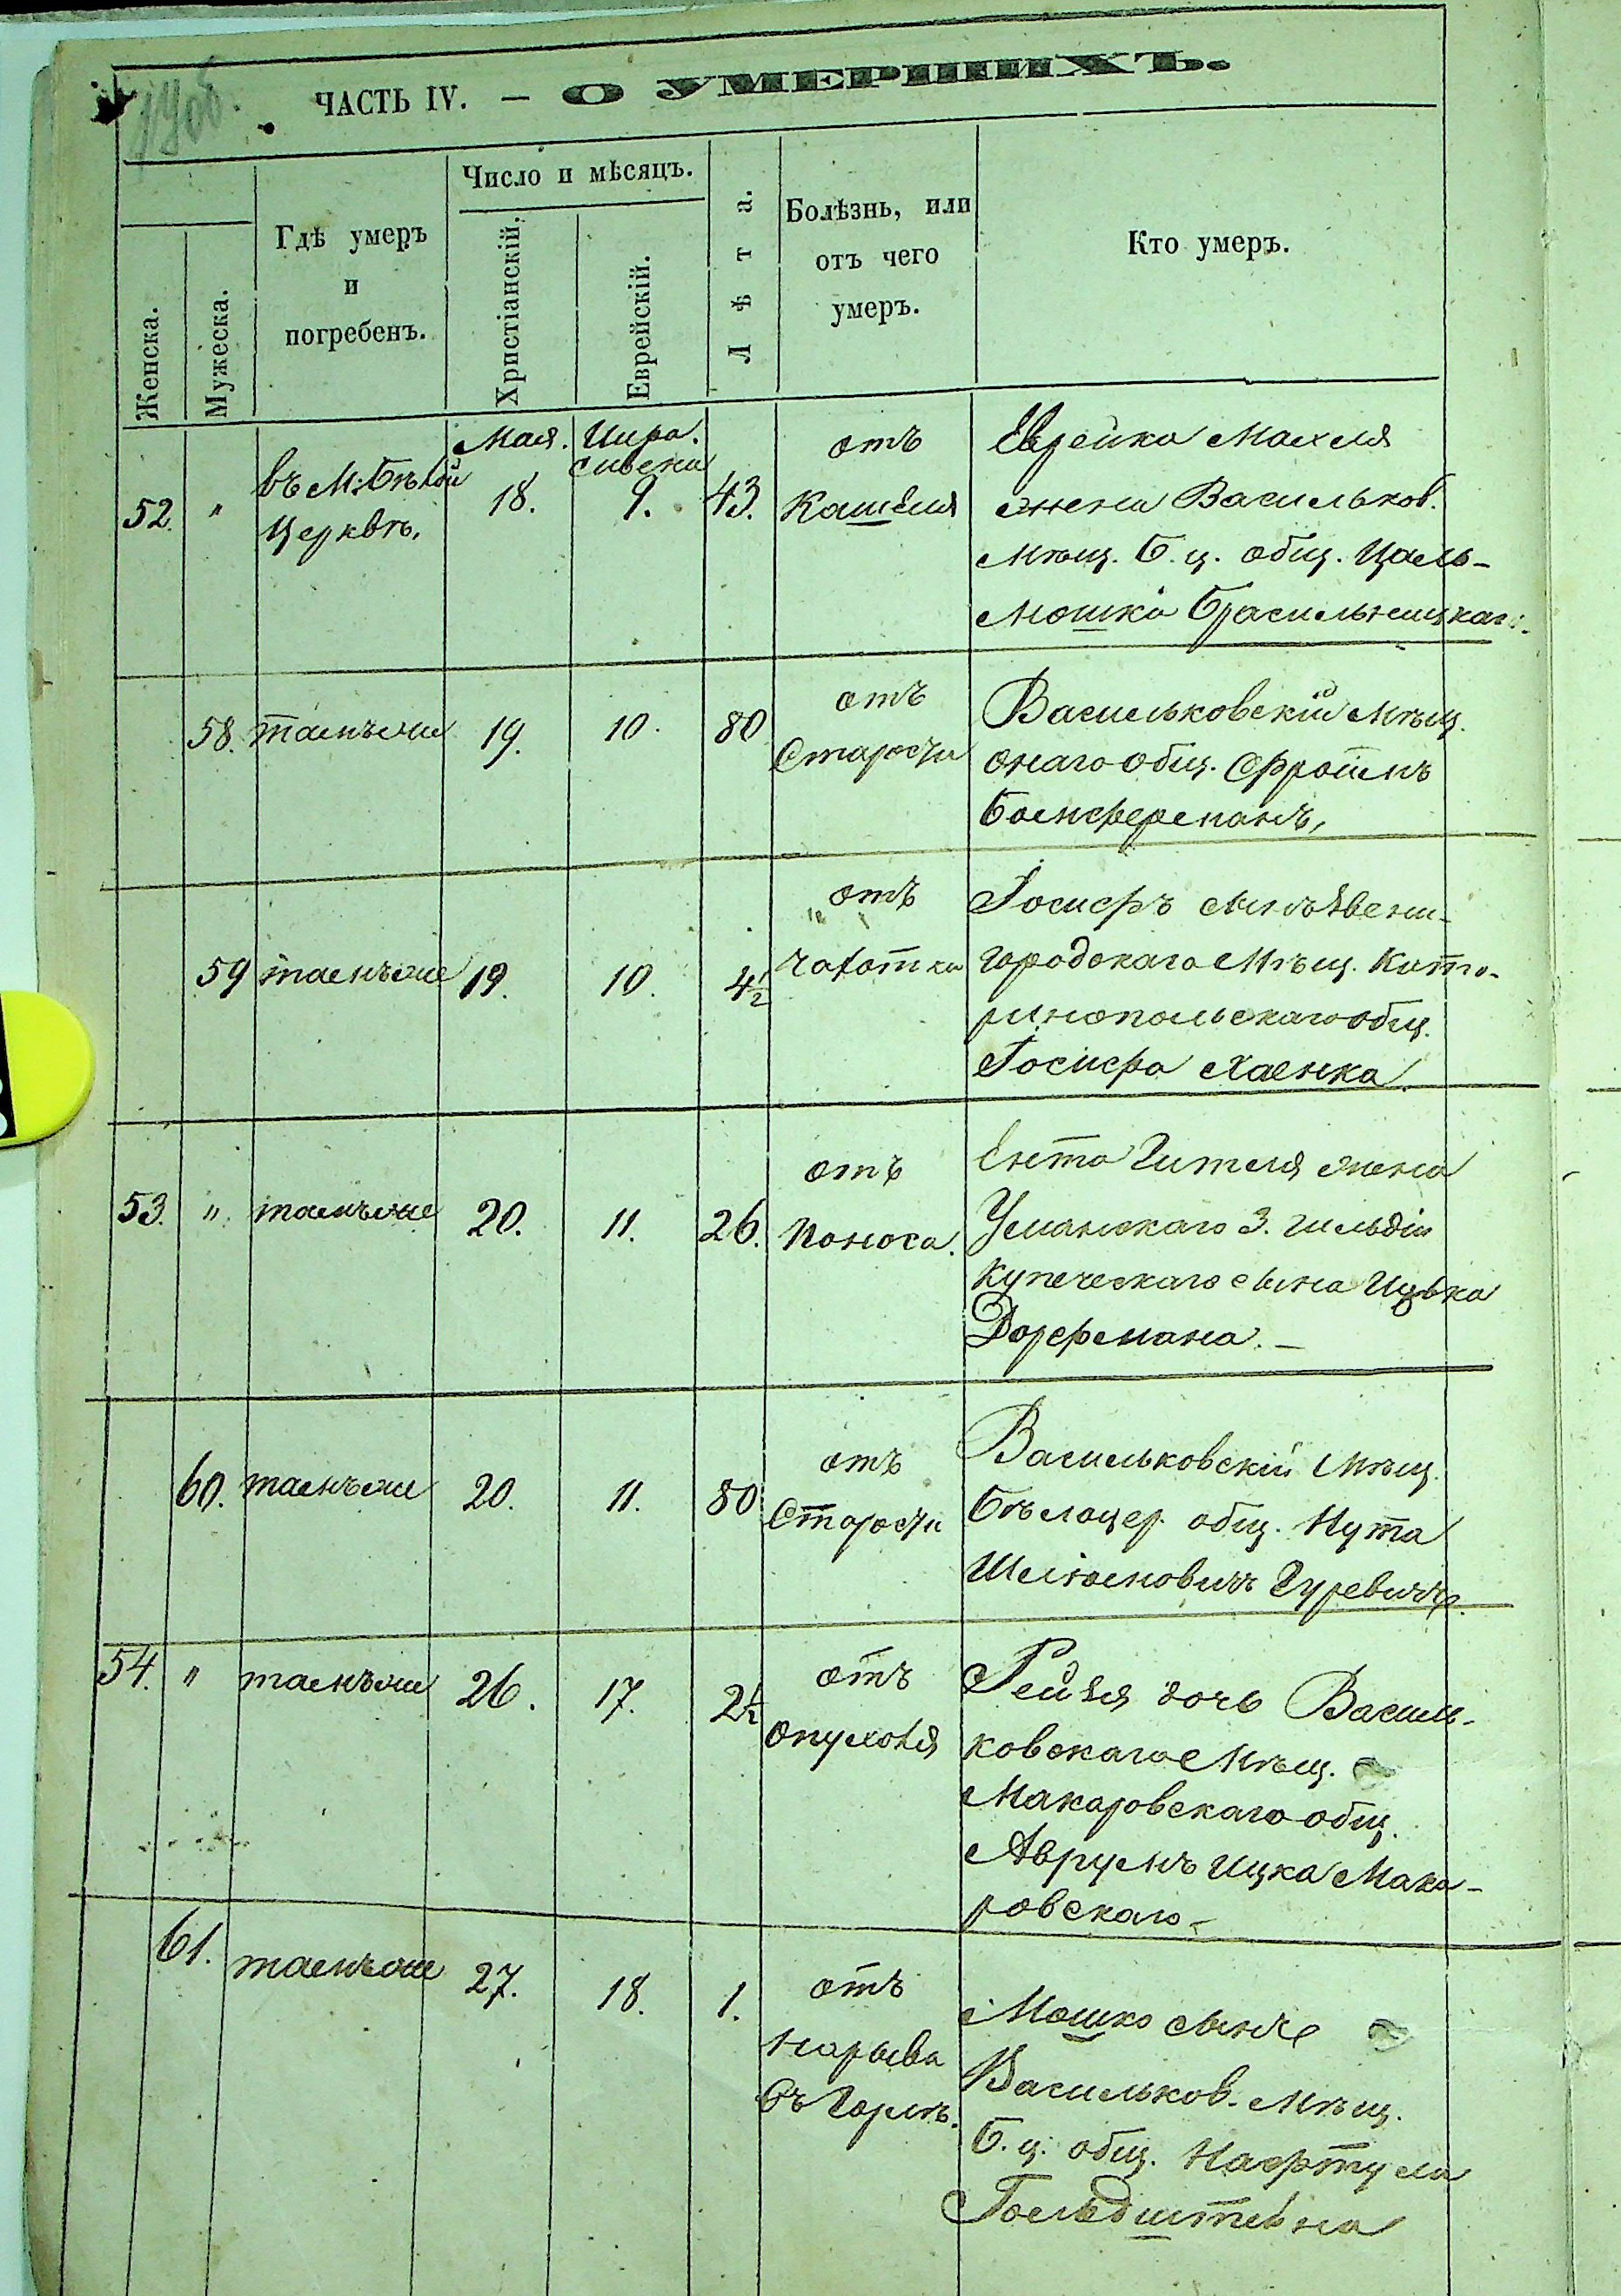 ЧАСТЬ IV. — О УМЕРШИХЪ.
Женска.
Мужеска.
Гдѣ умеръ
и
погребенъ.
Число и мѣсяцъ.
Христіанскій.
Еврейскій.
Лѣта.
Болѣзнь, или
отъ чего
умеръ.
Кто умеръ.
Мая.
52. " въ М. Бѣлой
Церквѣ.
18. 9. 43.
отъ
Кашеля
Еврейка Махля
жена Васильков.
мѣщ. Б. ц. общ. Цаль-
Мошка
58. тамъже 19. 10. 80
отъ
Старости
Васильковскій мѣщ.
онаго общ. Фроимъ
59 тамъже 19. 10. 4½
отъ
чахотки
Іосифъ сынъ Звени-
городскаго мѣщ. Кате-
ринопольскаго общ.
Іосифа Хаенка
53. " тамъже 20. 11. 26.
отъ
Поноса.
Ента Гителя жена
Уманскаго 3. гильдіи
Купеческаго сына Ицька
Дорфмана. —
60. тамъже 20. 11. 80
отъ
Старости
Васильковскій мѣщ.
Бѣлоцер. общ. Нута
Шліомовичъ Гуревичъ.
54. " тамъже 26. 17. 2½
отъ
опухоля
Рейзя дочь Василь-
ковскаго мѣщ.
Макаровскаго общ.
Аврумъ Ицка Мака-
ровскаго
61. тамъже 27. 18. 1.
отъ
нарыва
въ Горлѣ.
Мошко сынъ
Васильков. мѣщ.
Б. ц. общ. Нафтула
Гольдштейна